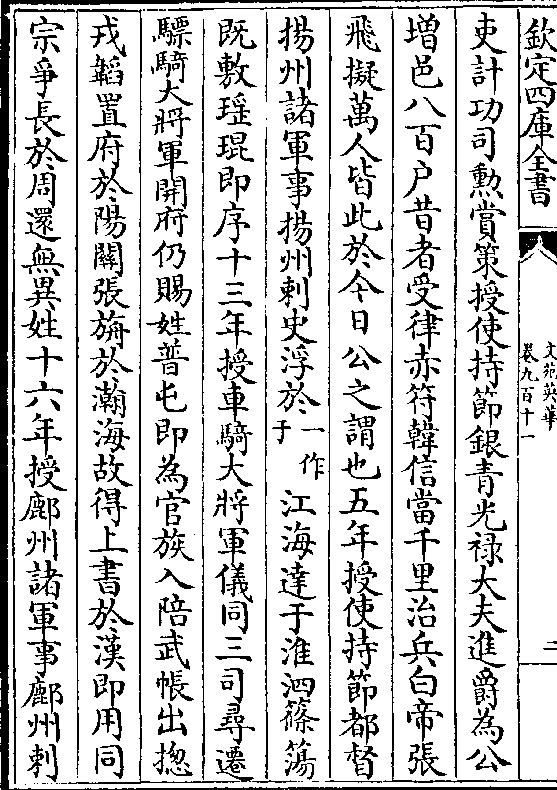 欽定四庫全書
文苑英華
卷九百十一
二
吏計功司勲賞策授使持節銀青光禄大夫進爵為公
増邑八百户昔者受律赤符韓信當千里治兵白帝張
飛擬萬人皆此於今日公之謂也五年授使持節都督
揚州諸軍事揚州刺史浮於一作于江海達于淮泗篠簜
既敷瑶琨即序十三年授車騎大將軍儀同三司尋遷
驃騎大將軍開府仍賜姓普屯即為官族入陪武帳出揔
戎韜置府於陽關張旃於瀚海故得上書於漢即用同
宗爭長於周還無異姓十六年授鄜州諸軍事鄜州刺